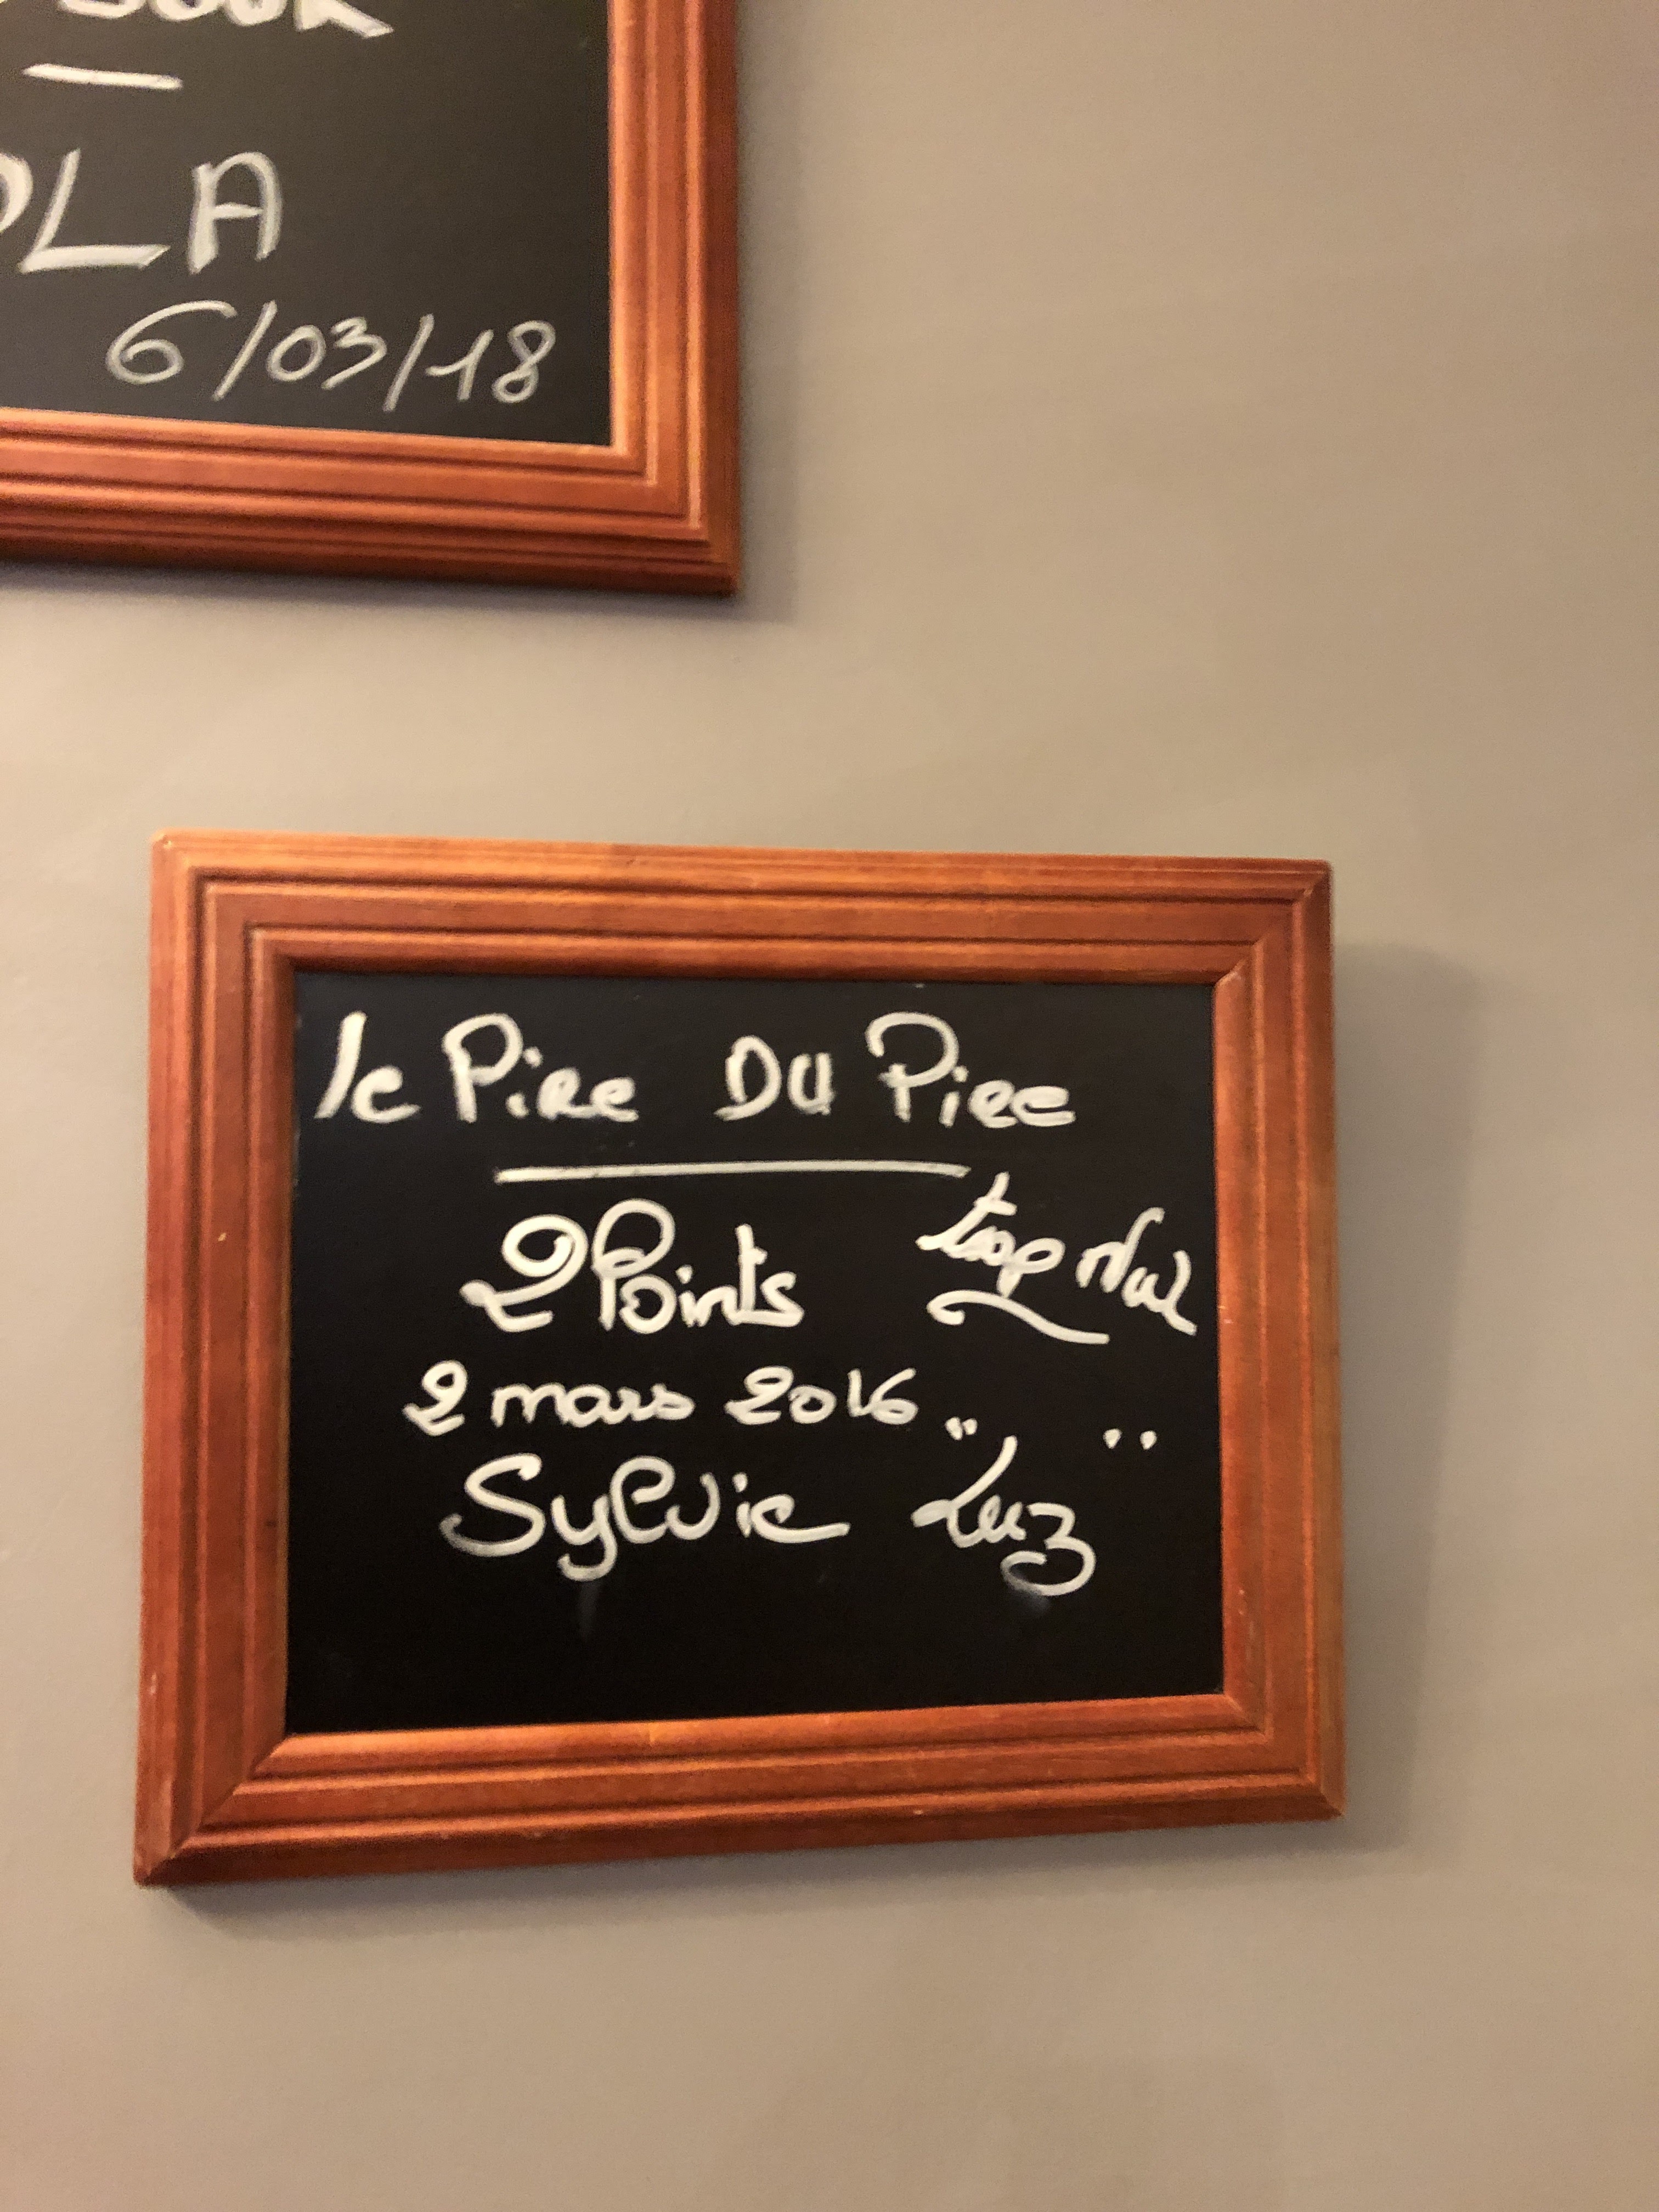 OLA
6/03/18
le Pire DU Pire
2 Points trop nul
2 mars 2016
Sylvie "Luz"